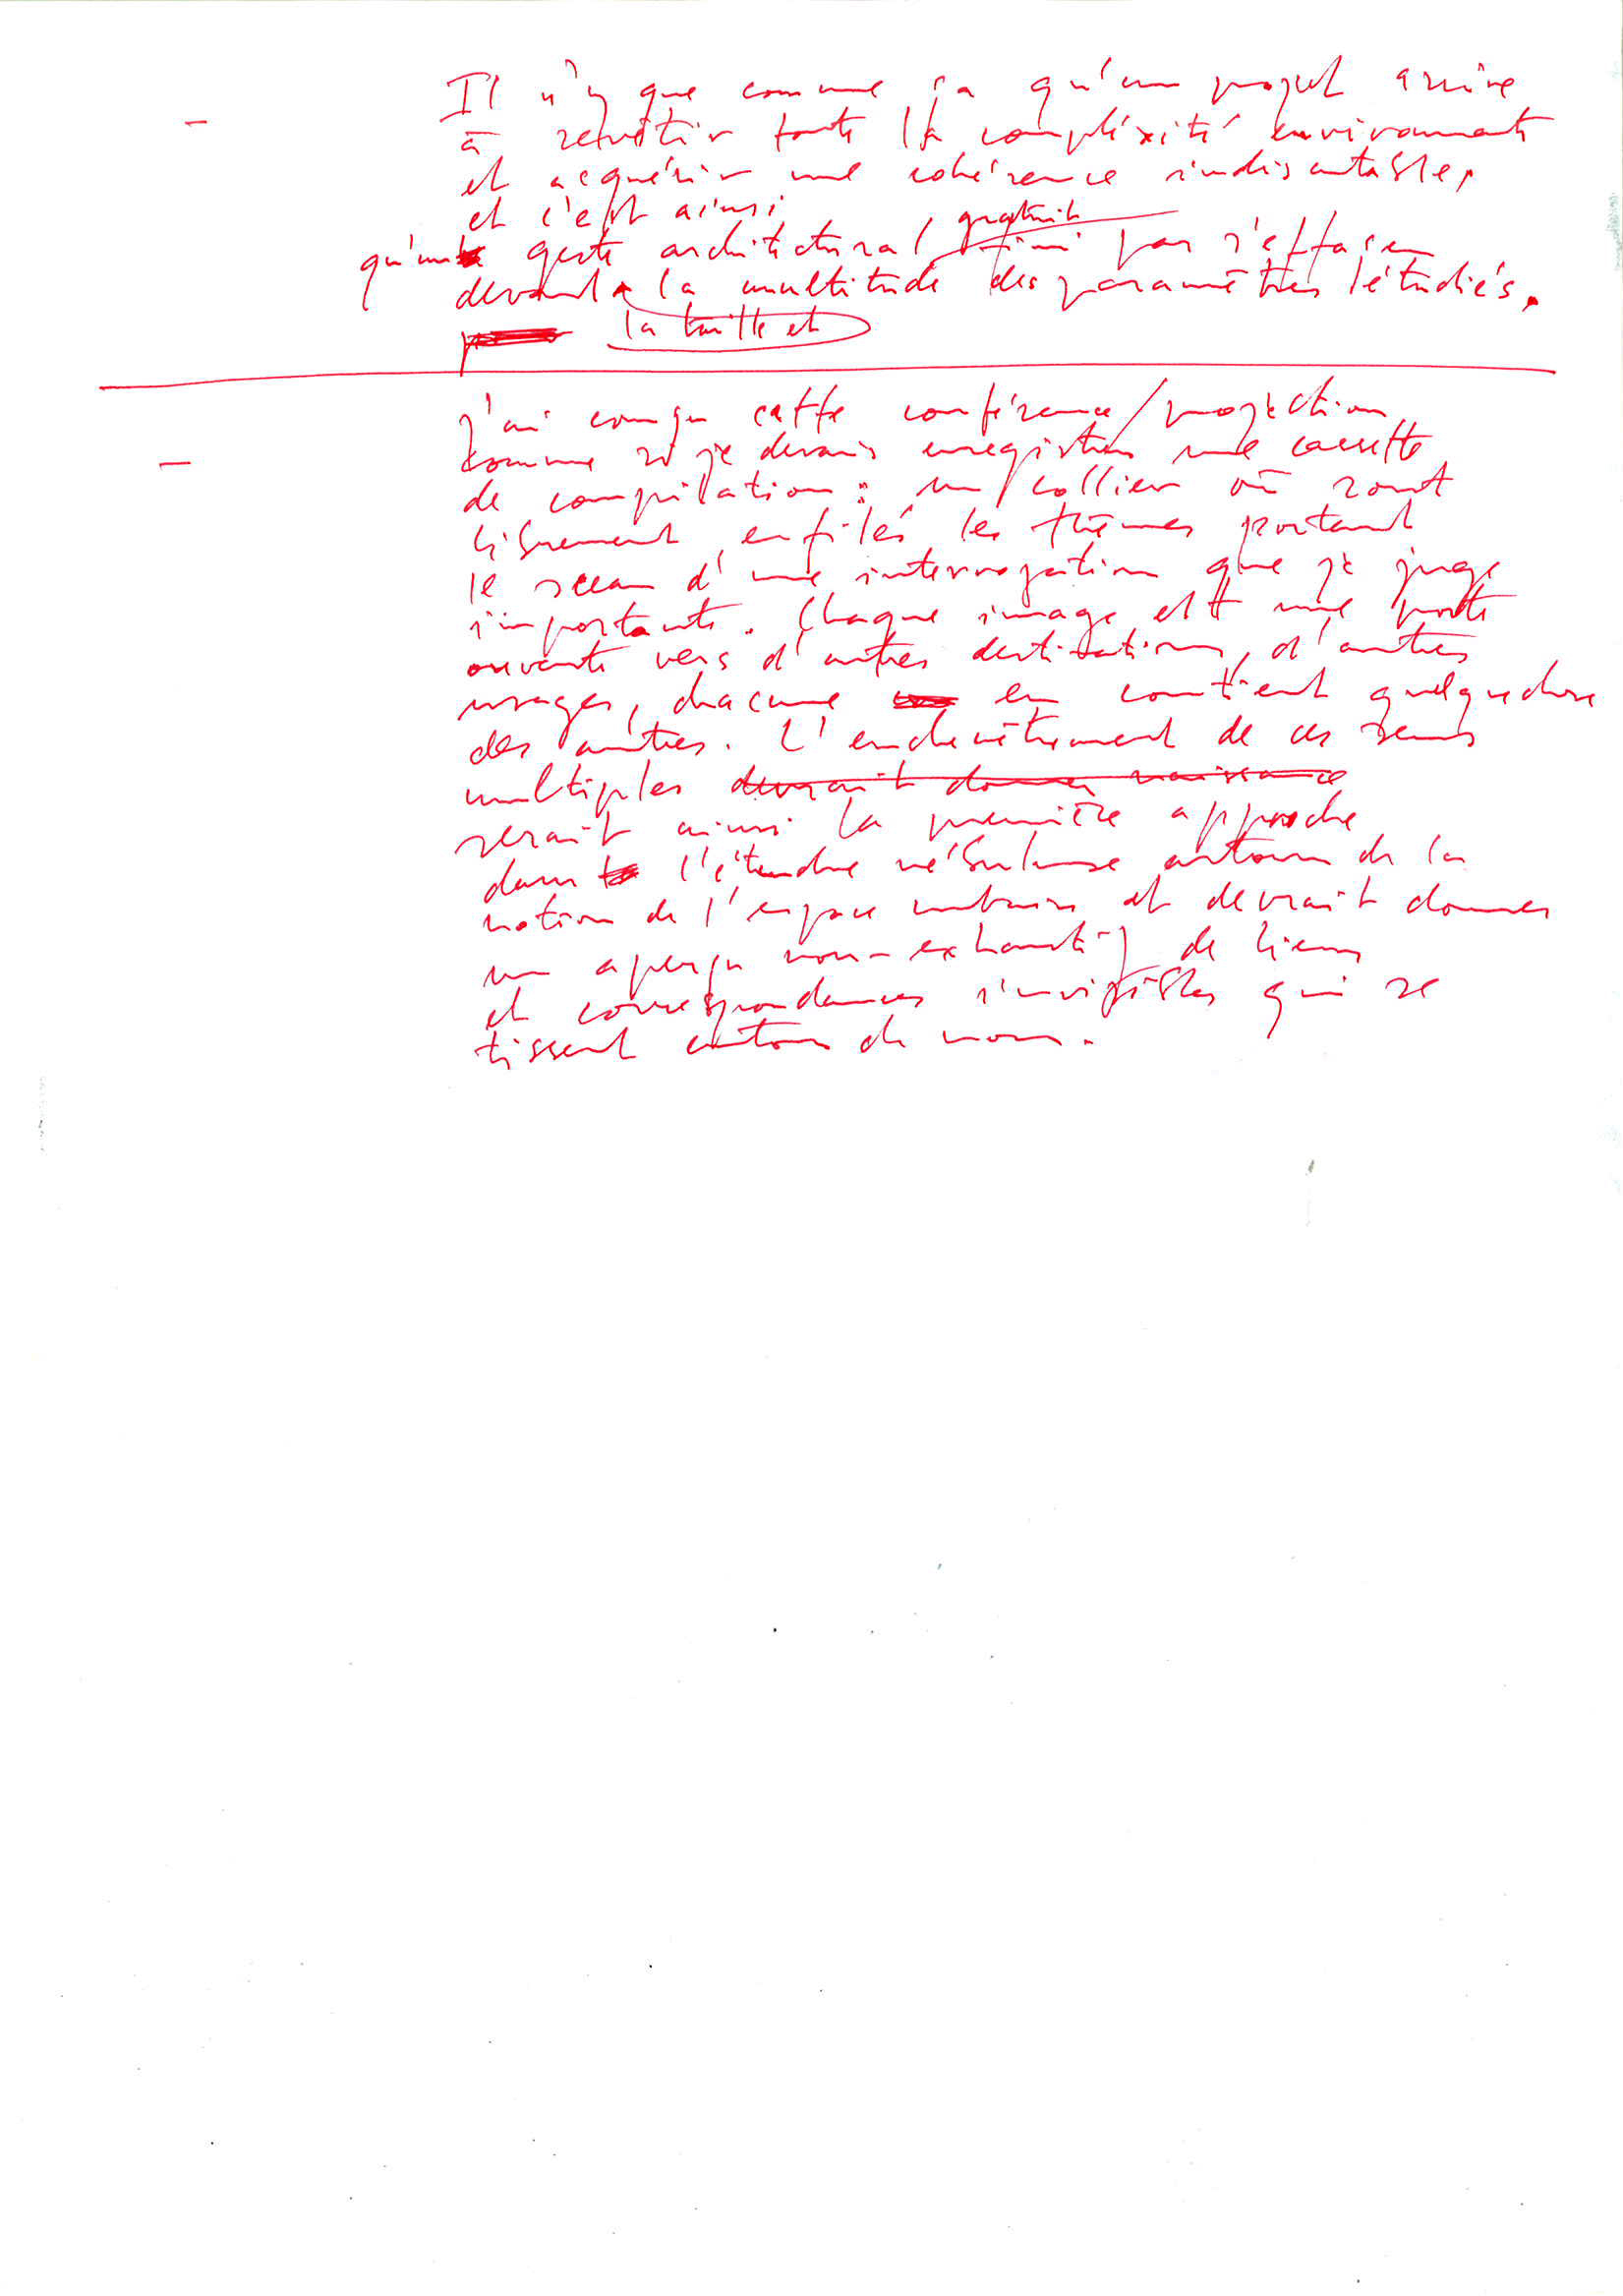 Il n'y que comme ça qu'un projet arrive
à retentir toute la compléxité environnante
et acquérir une cohérence indiscutable,
et c'est ainsi
gratuit
qu'un geste architectural fini par s'effacer
devant la multitude des paramètres étudiés.
la taille et
J'ai conçu cette conférence/projection
comme si je devais enregistrer une cassette
de compilation: un collier où sont
librement enfilés les thèmes portant
le sceau d'une interrogation que je juge
importante. Chaque image est une porte
ouverte vers d'autres destinations, d'autres
usages, chacune en contient quelque chose
des autres. L'enchevêtrement de ces sens
multiples devrait donner naissance
serait ainsi la première approche
dans l'étendue nébuleuse autour de la
notion de l'espace urbain et devrait donner
un aperçu non-exhaustif de liens
et correspondances invisibles qui se
tissent autour de nous.